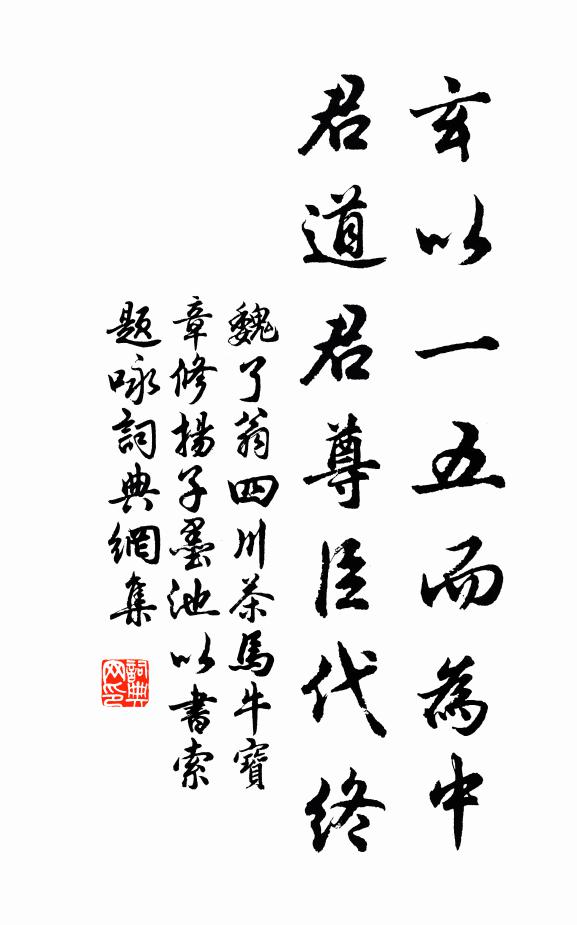 玄以一五而為中
君道君尊臣代終
魏了翁四川茶馬牛寶
章修揚子墨池以書索
題詠詞典網集
詞典网印